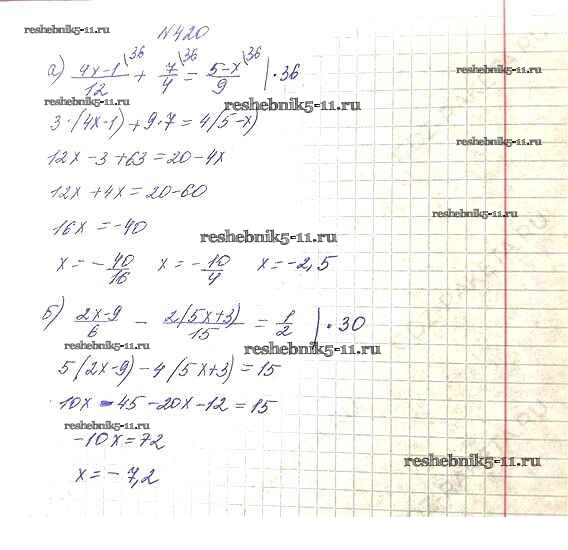 reshebnik5-11.ru
№420
а) (4x-1)/12 \36 + 7/4 \36 = (5-x)/9 \36 | · 36
reshebnik5-11.ru reshebnik5-11.ru
3·(4x-1)+9·7=4(5-x)
reshebnik5-11.ru
12x-3+63=20-4x
12x+4x=20-60
reshebnik5-11.ru
16x=-40
reshebnik5-11.ru
x=-40/16 x=-10/4 x=-2,5
б) (2x-9)/6 - 2(5x+3)/15 = 1/2 | · 30
reshebnik5-11.ru reshebnik5-11.ru
5(2x-9)-4(5x+3)=15
10x-45-20x-12=15
reshebnik5-11.ru
-10x=72
reshebnik5-11.ru
x=-7,2